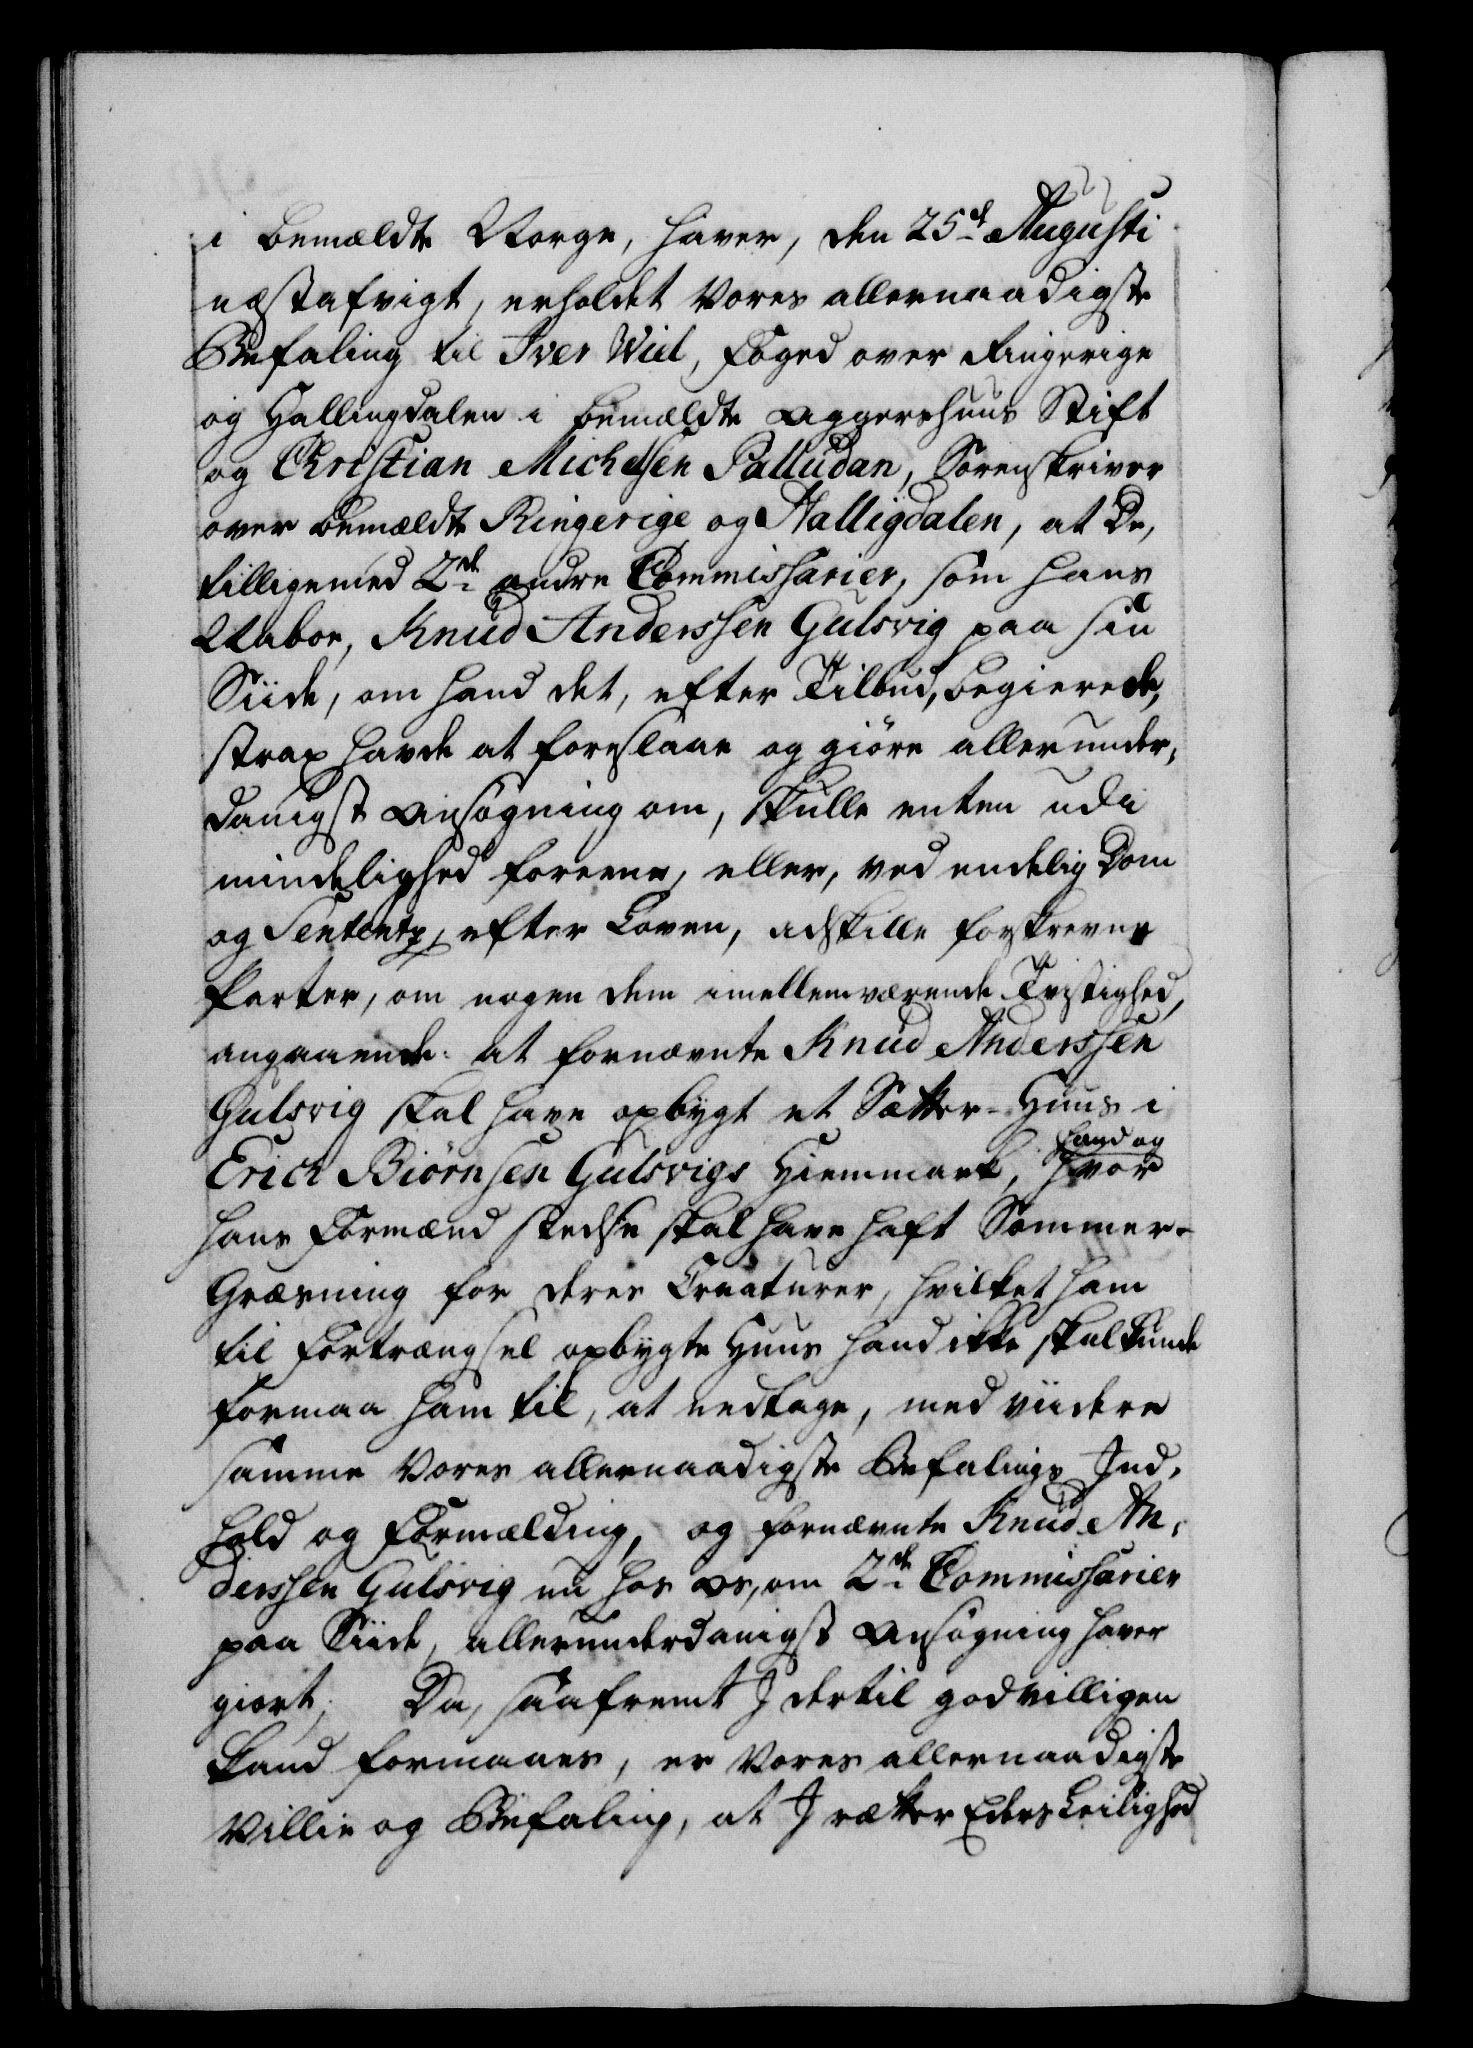 i bemældte Norge, haver, den 25de Augusti
næstafvigt, erholdet Vores allernaadigste
Befaling til Iver Wiel, Foged over Ringerige
og Hallingdalen i bemældte Aggershuus Stift
og Christian Michelsen Palludan, Sorenskriver
over bemældte Ringerige og Halligdalen, at De,
tilligemed 2de andre Commissarier, som hans
Nabor, Knud Anderssen Gulsvig paa sin
Siide, om hand det, efter Tilbud, begierede,
strax havde at foreslaae og giøre allerunder,
danigst Ansøgning om, skulle enten udi
mindelighed foreene, eller, ved endelig Dom
og Sententz, efter Loven, adskille forskrevne
Parter, om nogen dem imellemværende Tvistighed,
angaaende: at fornævnte Knud Anderssen
Gulsvig skal have opbygt et Sætter-Huus i
Erich Biørnsen Gulsvigs Hiemmark, hvor
hand og
hans Formænd stedse skal have haft Sommer-
Græsning for deres Creaturer, hvilket ham
til Fortrængsel opbygte Huus hand ikke skal kunde
formaa ham til, at nedtage, med viidere
samme Vores allernaadigste Befalings Ind,
hold og Formælding, og fornævnte Knud An,
derssen Gulsvig nu hos os, om 2de Commissarier
paa Siide, allerunderdanigst Ansøgning haver
giort; Da, saafremt I dertil godvilligen
kand formaaes, er Vores allernaadigste
Villie og Befaling, at I rætter Eders Leilighed